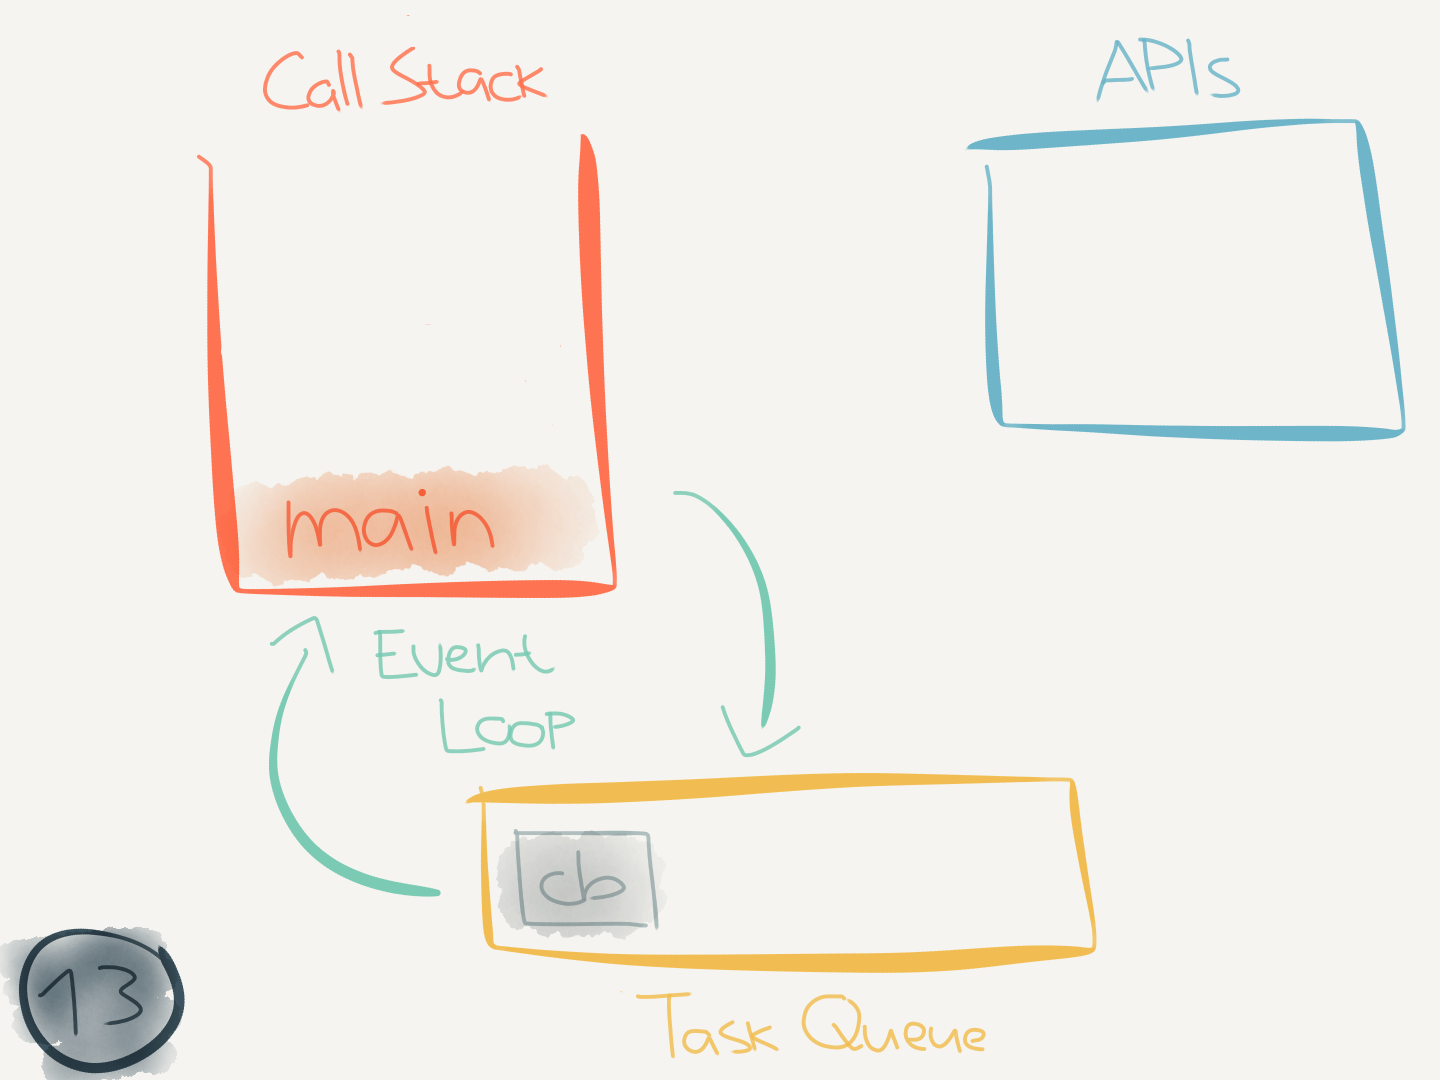 Call Stack
APIs
main
Event
Loop
cb
13
Task Queue